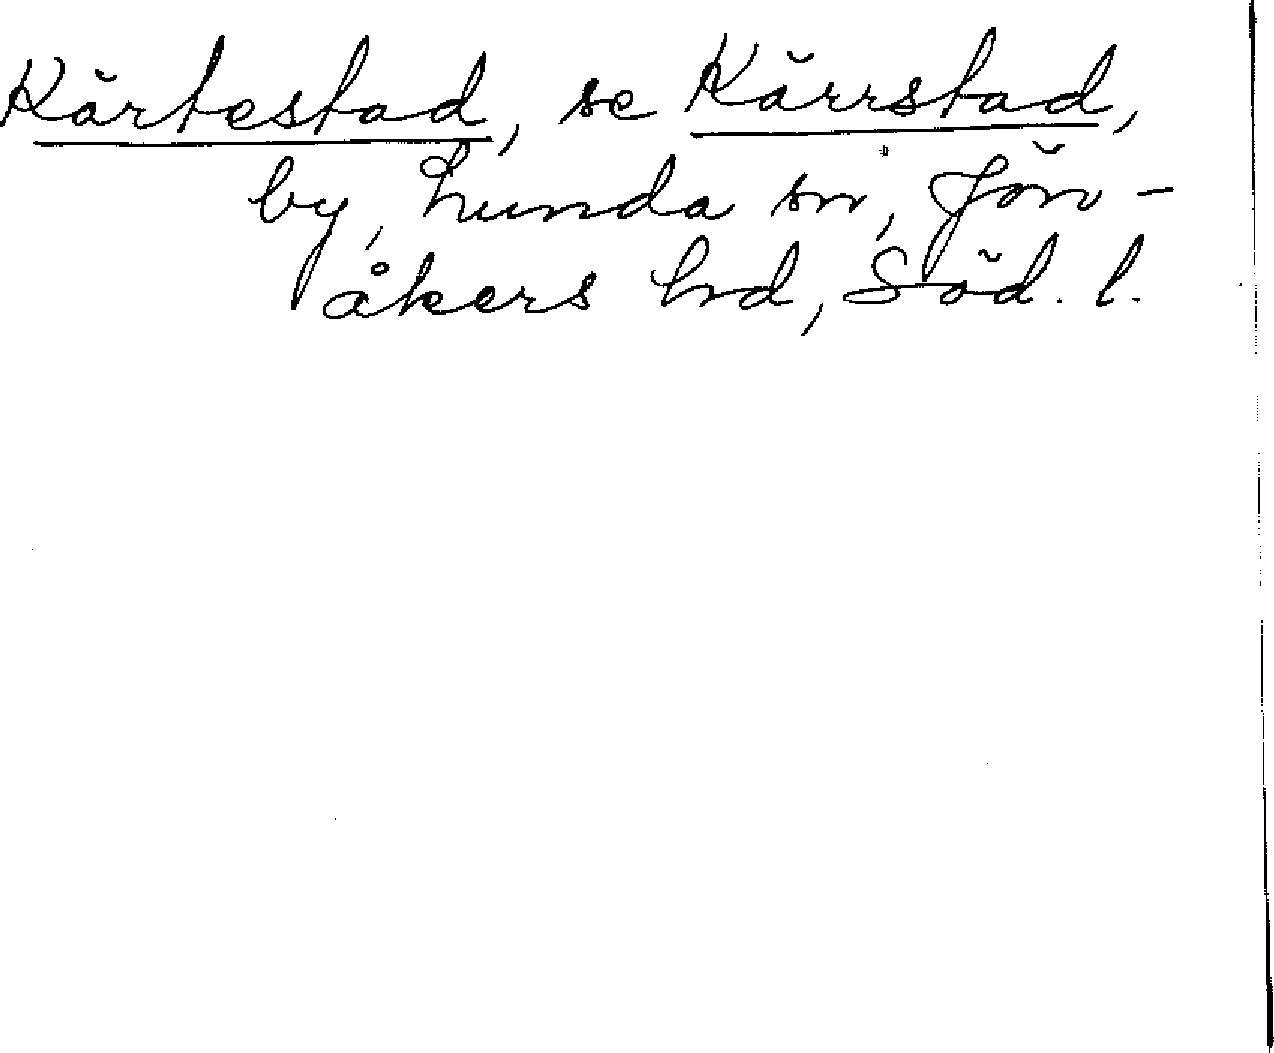 Kärtestad, se Kärrstad,
by, Lunda sn, Jön-
åkers hd, Söd. l.